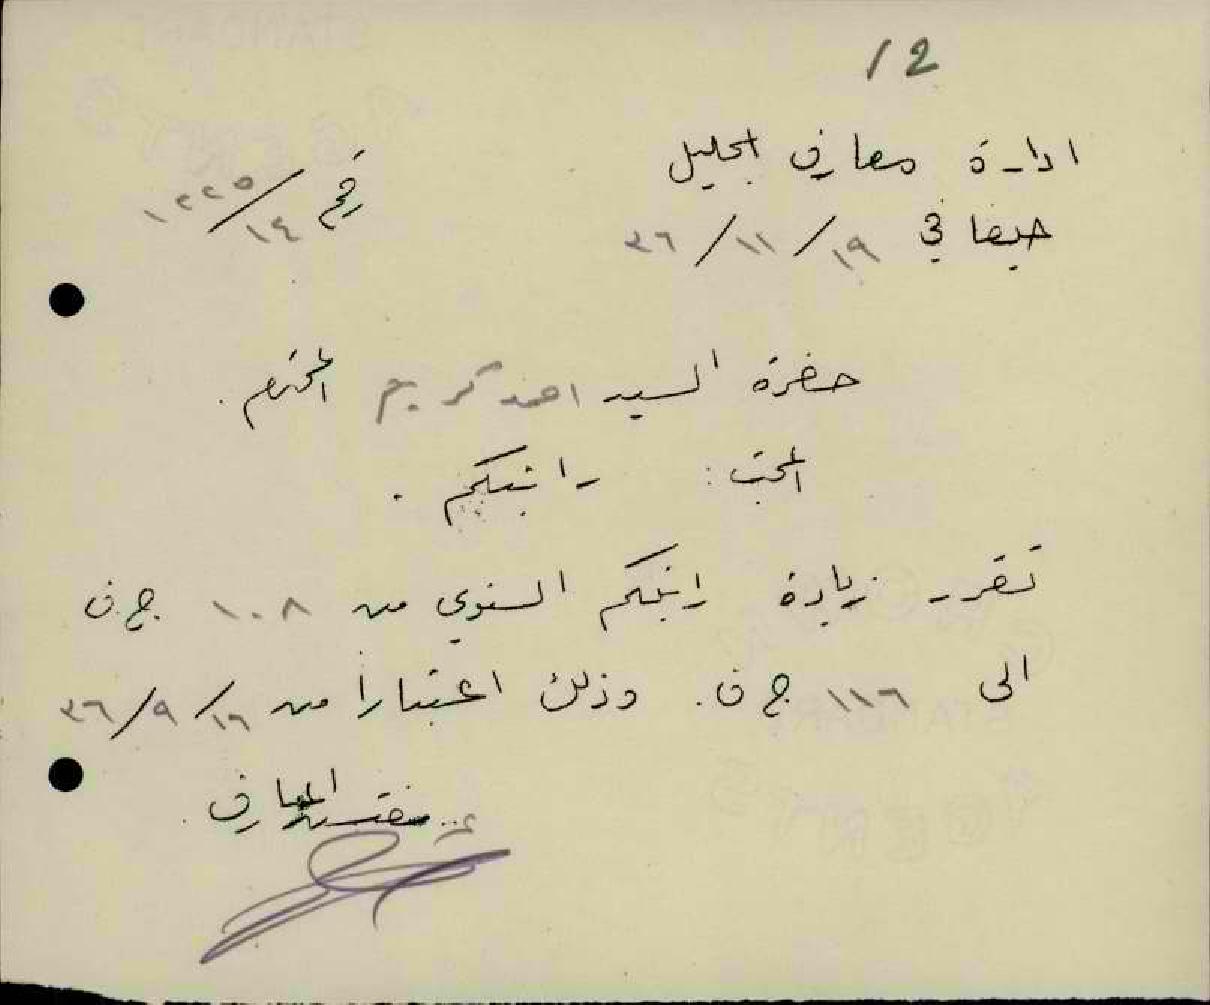 12
ادارة معارف الجليل
رقم ١٤/١٢٢٥
حيفا في ١٩/١١/٢٦
حضرة السيد احمد كريم المحترم.
المبحث: راتبكم.
تقرر زيادة راتبكم السنوي من ١٠٨ ج. ف
الى ١١٦ ج ف. وذلك اعتباراً من ١٦/٩/٢٦
مفتش المعارف.